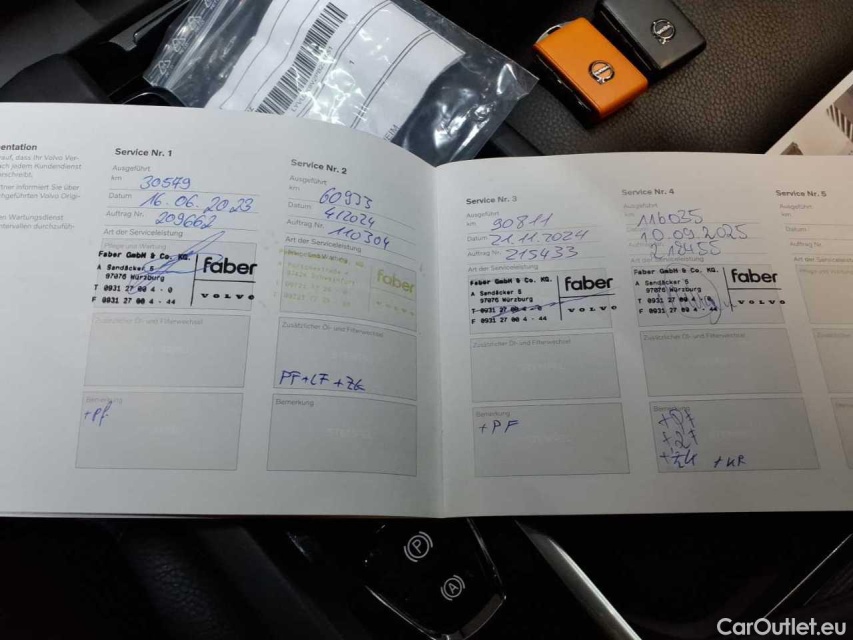 entation
auf, dass Ihr Volvo Ver-
ach jedem Kundendienst
eschreibt.
rtner informiert Sie über
chgeführten Volvo Origi-
es Wartungsdienst
ntervallen durchzufüh-
Service Nr. 1
Ausgeführt
km 30579
Datum 16.06.2023
Auftrag Nr. 209662
Art der Serviceleistung
Pflege und Wartung
Faber GmbH & Co. KG.
A Sandäcker 5
97076 Würzburg
T 0931 27 00 4 - 0
F 0931 27 00 4 - 44
faber
VOLVO
Zusätzlicher Öl- und Filterwechsel
Bemerkung
+PF
Service Nr. 2
Ausgeführt
km 60933
Datum
Auftrag Nr. 110304
Art der Serviceleistung
faber
Zusätzlicher Öl- und Filterwechsel
PF+LF+ZK
Bemerkung
Service Nr. 3
Ausgeführt
km 90811
Datum 21.11.2024
Auftrag Nr. 215433
Art der Serviceleistung
Faber GmbH & Co. KG.
A Sandäcker 5
97076 Würzburg
T 0931 27 00 4 - 0
F 0931 27 00 4 - 44
faber
VOLVO
Zusätzlicher Öl- und Filterwechsel
Bemerkung
+PF
Service Nr. 4
Ausgeführt
km 116035
Datum 10.09.2025
218455
Faber GmbH & Co. KG.
A Sandäcker 5
97076 Würzburg
T 0931 27 00 4 - 0
F 0931 27 00 4 - 44
faber
VOLVO
Zusätzlicher Öl- und Filterwechsel
+KR
Service Nr. 5
Ausgeführt
km
Datum
Auftrag Nr.
Art der Serviceleistung
Zusätzlicher
Bemerkung
P
A
CarOutlet.eu